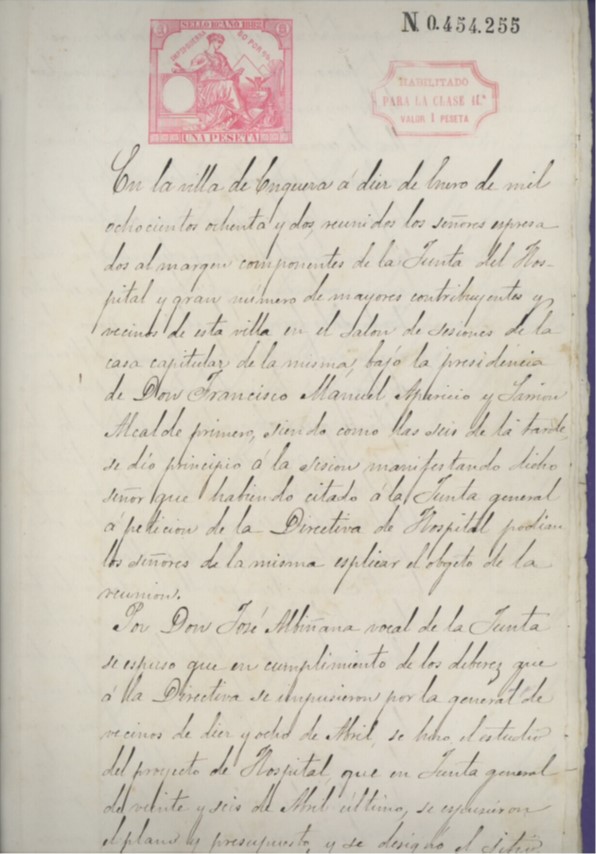 N. 0.454.255
SELLO 11º AÑO 1882
UNA PESETA
HABILITADO
PARA LA CLASE 11.ª
VALOR 1 PESETA
En la villa de Enguera á diez de Enero de mil
ochocientos ochenta y dos, reunidos los señores espresa
dos al margen componentes de la Junta del Hos-
pital y gran número de mayores contribuyentes y
vecinos de esta villa en el salon de sesiones de la
casa capitular de la misma, bajo la presidencia
de Don Francisco Manuel Aparicio y Sarrion
Alcalde primero, siendo como las seis de la tarde,
se dió principio á la sesion manifestando dicho
señor que habiendo citado á la Junta general
á peticion de la Directiva de Hospital podian
los señores de la misma esplicar el obgeto de la
reunion.
Por Don José Albiñana vocal de la Junta
se espuso que en cumplimiento de los deberez que
á la Directiva se impusieron por la general de
vecinos de diez y ocho de Abril, se hizo el estudio
del proyecto de Hospital, que en Junta general
de veinte y seis de Abril último, se espusieron
el plano y presupuesto, y se designó el sitio